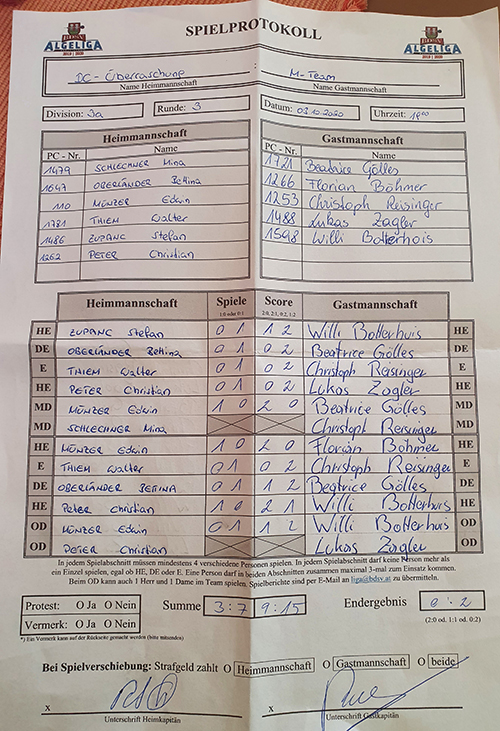 SPIELPROTOKOLL
BDSV
ALGELIGA
2019 | 2020
BDSV
ALGELIGA
2019 | 2020
DC - Überraschung : M-Team
Name Heimmannschaft Name Gastmannschaft
Division: 3a Runde: 3 Datum: 03.10.2020 Uhrzeit: 18⁰⁰
Heimmannschaft Gastmannschaft
PC - Nr. Name PC - Nr. Name
1479 SCHLECHNER Mina 1721 Beatrice Gölles
1647 OBERLÄNDER Bettina 1266 Florian Böhmer
110 MÜNZER Edwin 1253 Christoph Reisinger
1781 THIEM Walter 1488 Lukas Zagler
1486 ZUPANC Stefan 1598 Willi Botterhuis
1262 PETER Christian
Heimmannschaft Spiele Score Gastmannschaft
1:0 oder 0:1 2:0, 2:1, 0:2, 1:2
HE ZUPANC Stefan 0 1 1 2 Willi Botterhuis HE
DE OBERLÄNDER Bettina 0 1 0 2 Beatrice Gölles DE
E THIEM Walter 0 1 0 2 Christoph Reisinger E
HE PETER Christian 0 1 0 2 Lukas Zagler HE
MD MÜNZER Edwin 1 0 2 0 Beatrice Gölles MD
MD SCHLECHNER Mina Christoph Reisinger MD
HE MÜNZER Edwin 1 0 2 0 Florian Böhmer HE
E THIEM Walter 0 1 0 2 Christoph Reisinger E
DE OBERLÄNDER BETTINA 0 1 1 2 Beatrice Gölles DE
HE Peter Christian 1 0 2 1 Willi Botterhuis HE
OD MÜNZER Edwin 0 1 1 2 Willi Botterhuis OD
OD PETER Christian Lukas Zagler OD
In jedem Spielabschnitt müssen mindestens 4 verschiedene Personen spielen. In jedem Spielabschnitt darf keine Person mehr als
ein Einzel spielen, egal ob HE, DE oder E. Eine Person darf in beiden Abschnitten zusammen maximal 3-mal zum Einsatz kommen.
Beim OD kann auch 1 Herr und 1 Dame im Team spielen. Spielberichte sind per E-Mail an liga@bdsv.at zu übermitteln.
Protest: O Ja O Nein Summe 3:7 9:15 Endergebnis 0:2
Vermerk: O Ja O Nein (2:0 od. 1:1 od. 0:2)
*) Ein Vermerk kann auf der Rückseite gemacht werden (bitte mitsenden)
Bei Spielverschiebung: Strafgeld zahlt O Heimmannschaft O Gastmannschaft O beide
X X
Unterschrift Heimkapitän Unterschrift Gastkapitän